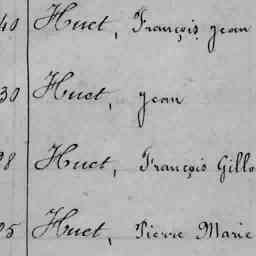 40 Huet, François Jean
30 Huet, Jean
28 Huet, François Gillo
25 Huet, Pierre Marie